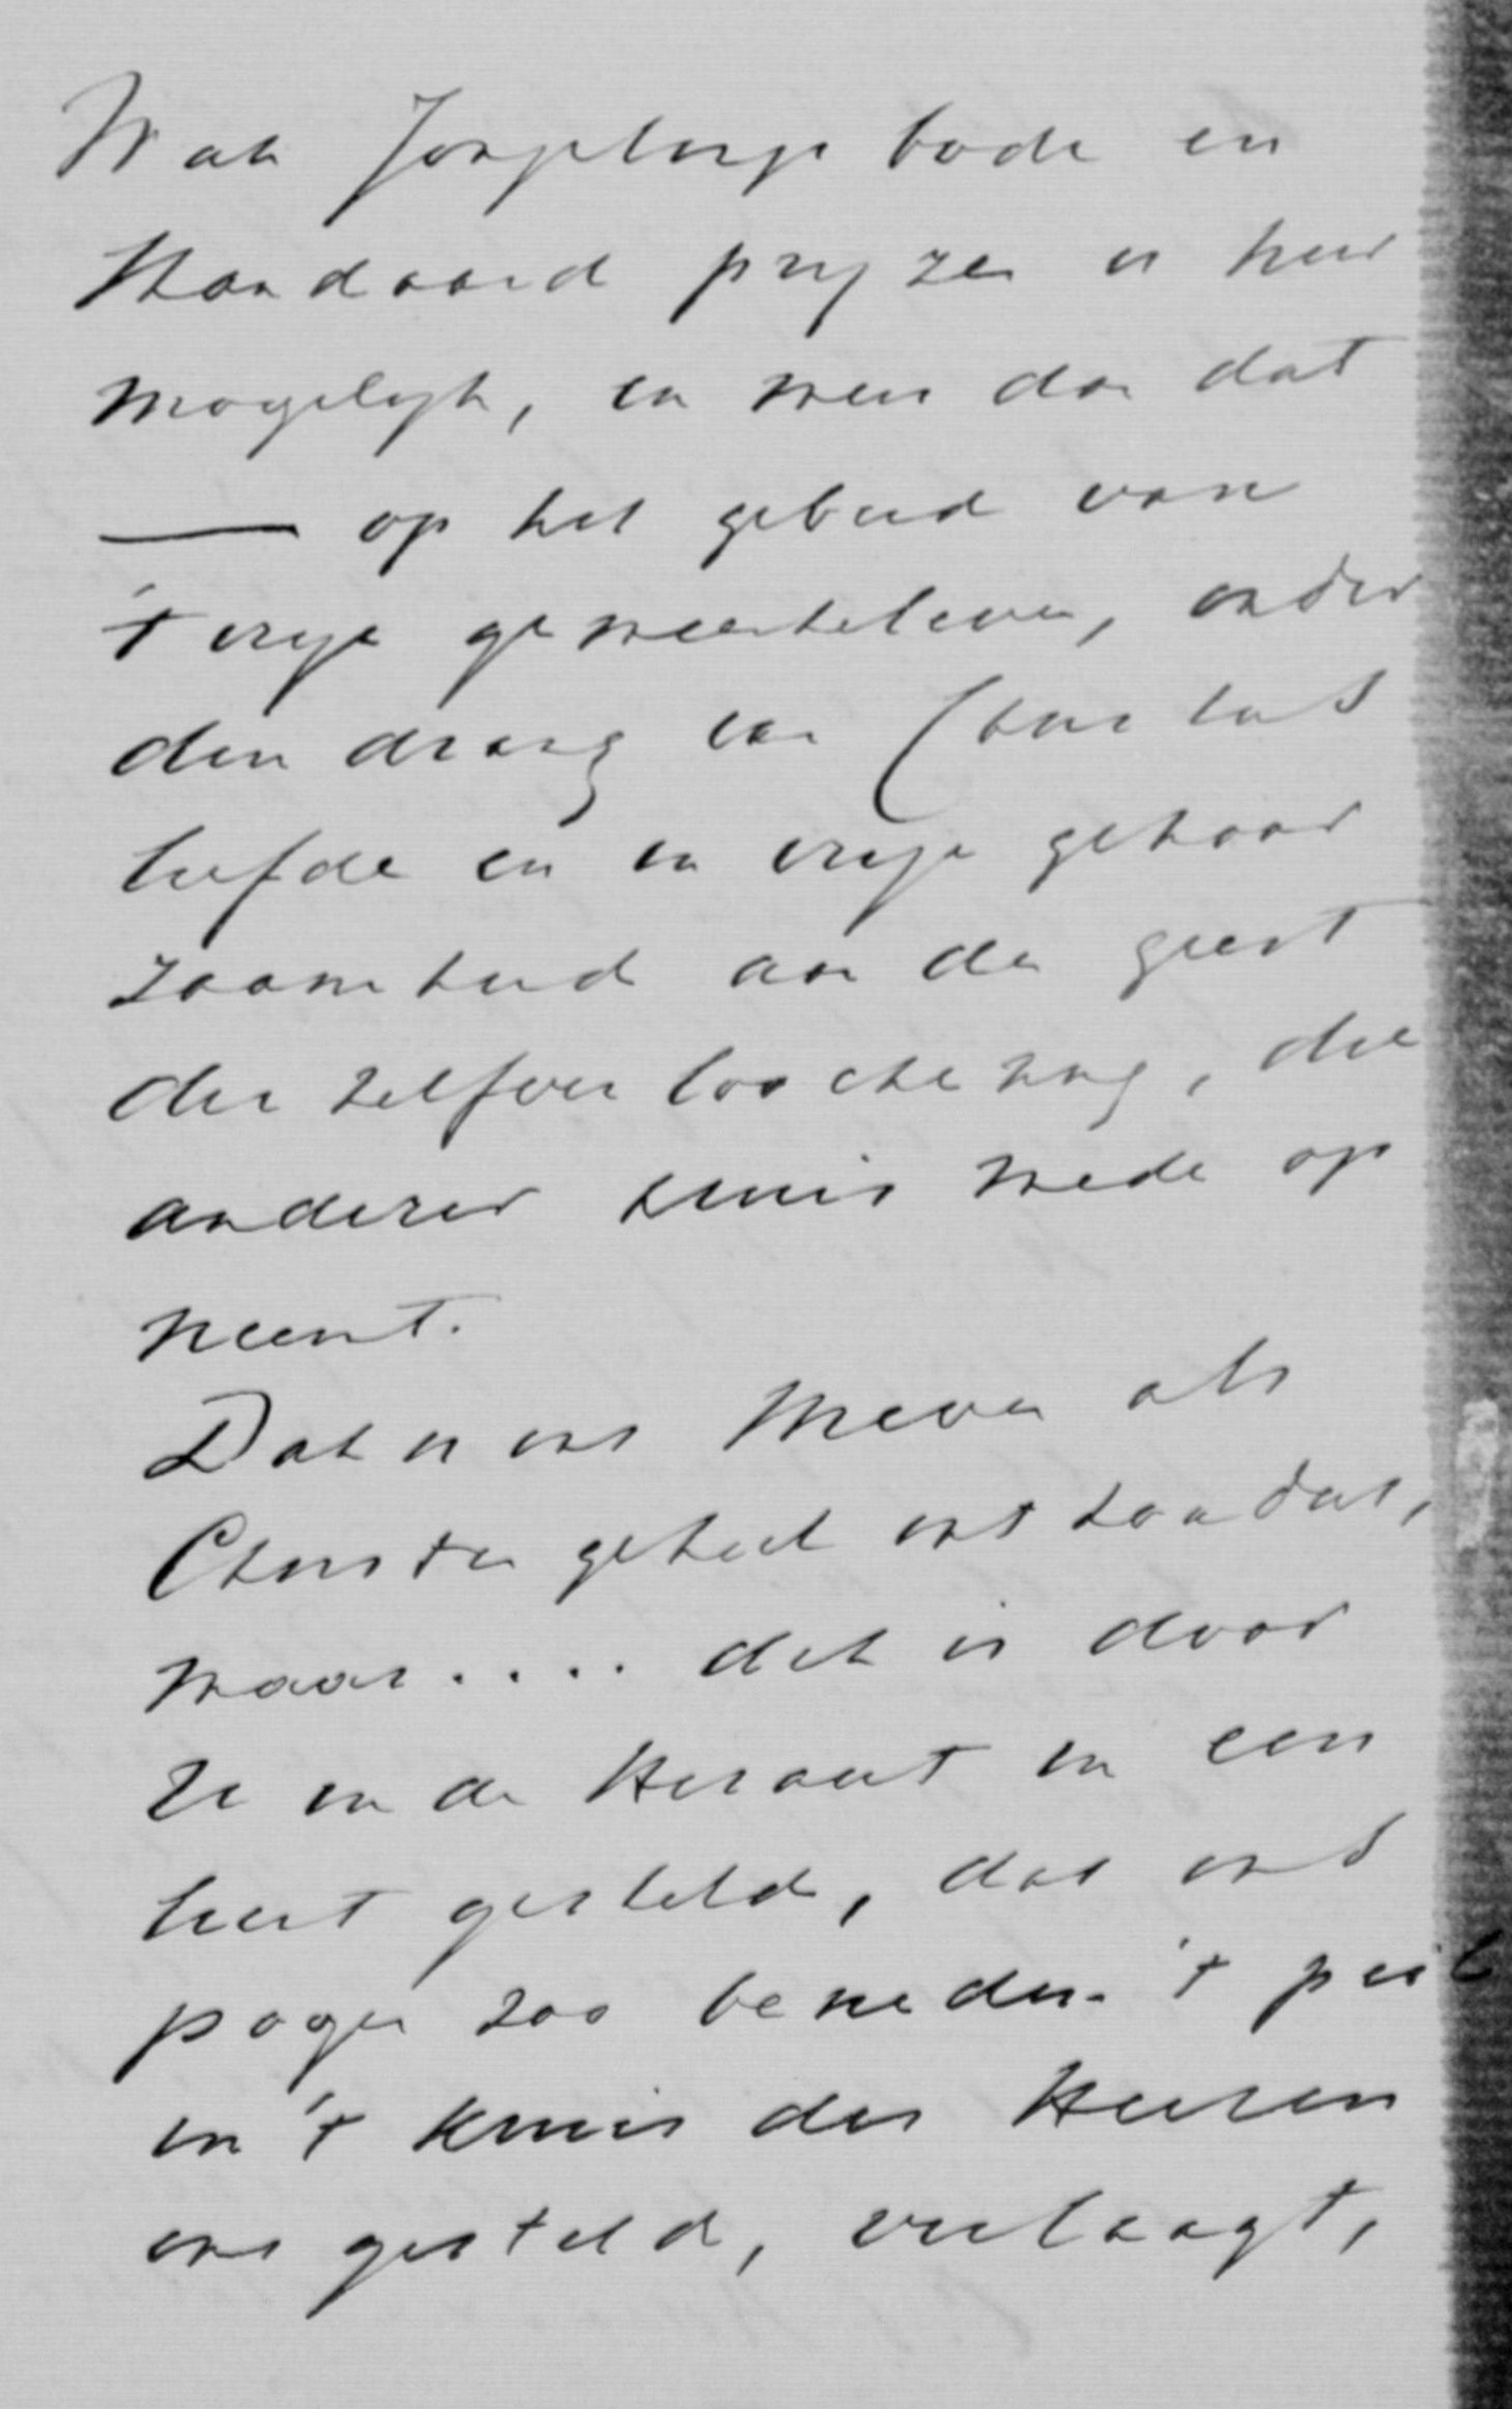 Wat Jongelings bode en
Standaard pryzen is hier
mogelyk, en meer dan dat
— op het gebied van
't vrye gemeenteleven, onder
den drang van Christus
liefde en in vrye gehoor
zaamheid aan de geest
der zelfverloochening, die
anderer kruis mede op
neemt.
Dat is ons streven als
Christen geheel ons standaard,
maar.... dit is door
U in de Heraut in een
licht gesteld, dat ons
pogen zoo beneden 't peil
in 't kruis des Heeren
ons gesteld, verlaagt,